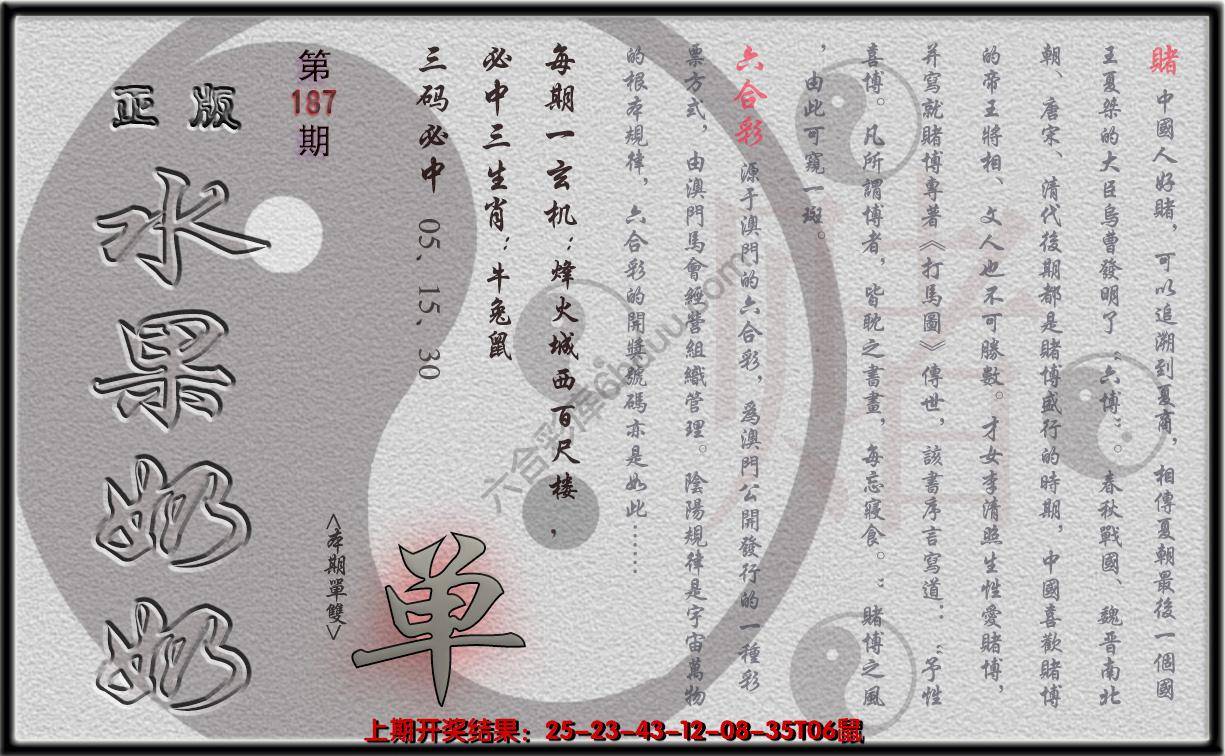 賭 中國人好賭，可以追溯到夏商，相傳夏朝最後一個國
王夏桀的大臣烏曹發明了“六博”。春秋戰國、魏晋南北
朝、唐宋、清代後期都是賭博盛行的時期，中國喜歡賭博
的帝王將相、文人也不可勝數。才女李清照生性愛賭博，
并寫就賭博專著《打馬圖》傳世，該書序言寫道：“予性
喜博。凡所謂博者，皆耽之書畫，每忘寢食。”賭博之風
，由此可窺一斑。
六合彩 源于澳門的六合彩，爲澳門公開發行的一種彩
票方式，由澳門馬會經營組織管理。陰陽規律是宇宙萬物
的根本規律，六合彩的開獎號碼亦是如此……
每期一玄机：烽火城西百尺楼，
必中三生肖：牛兔鼠
三码必中 05、15、30
第
187
期
正版
水果奶奶
<本期單雙>
单
賭
六合彩库6hduu.com
上期开奖结果：25-23-43-12-08-35T06鼠